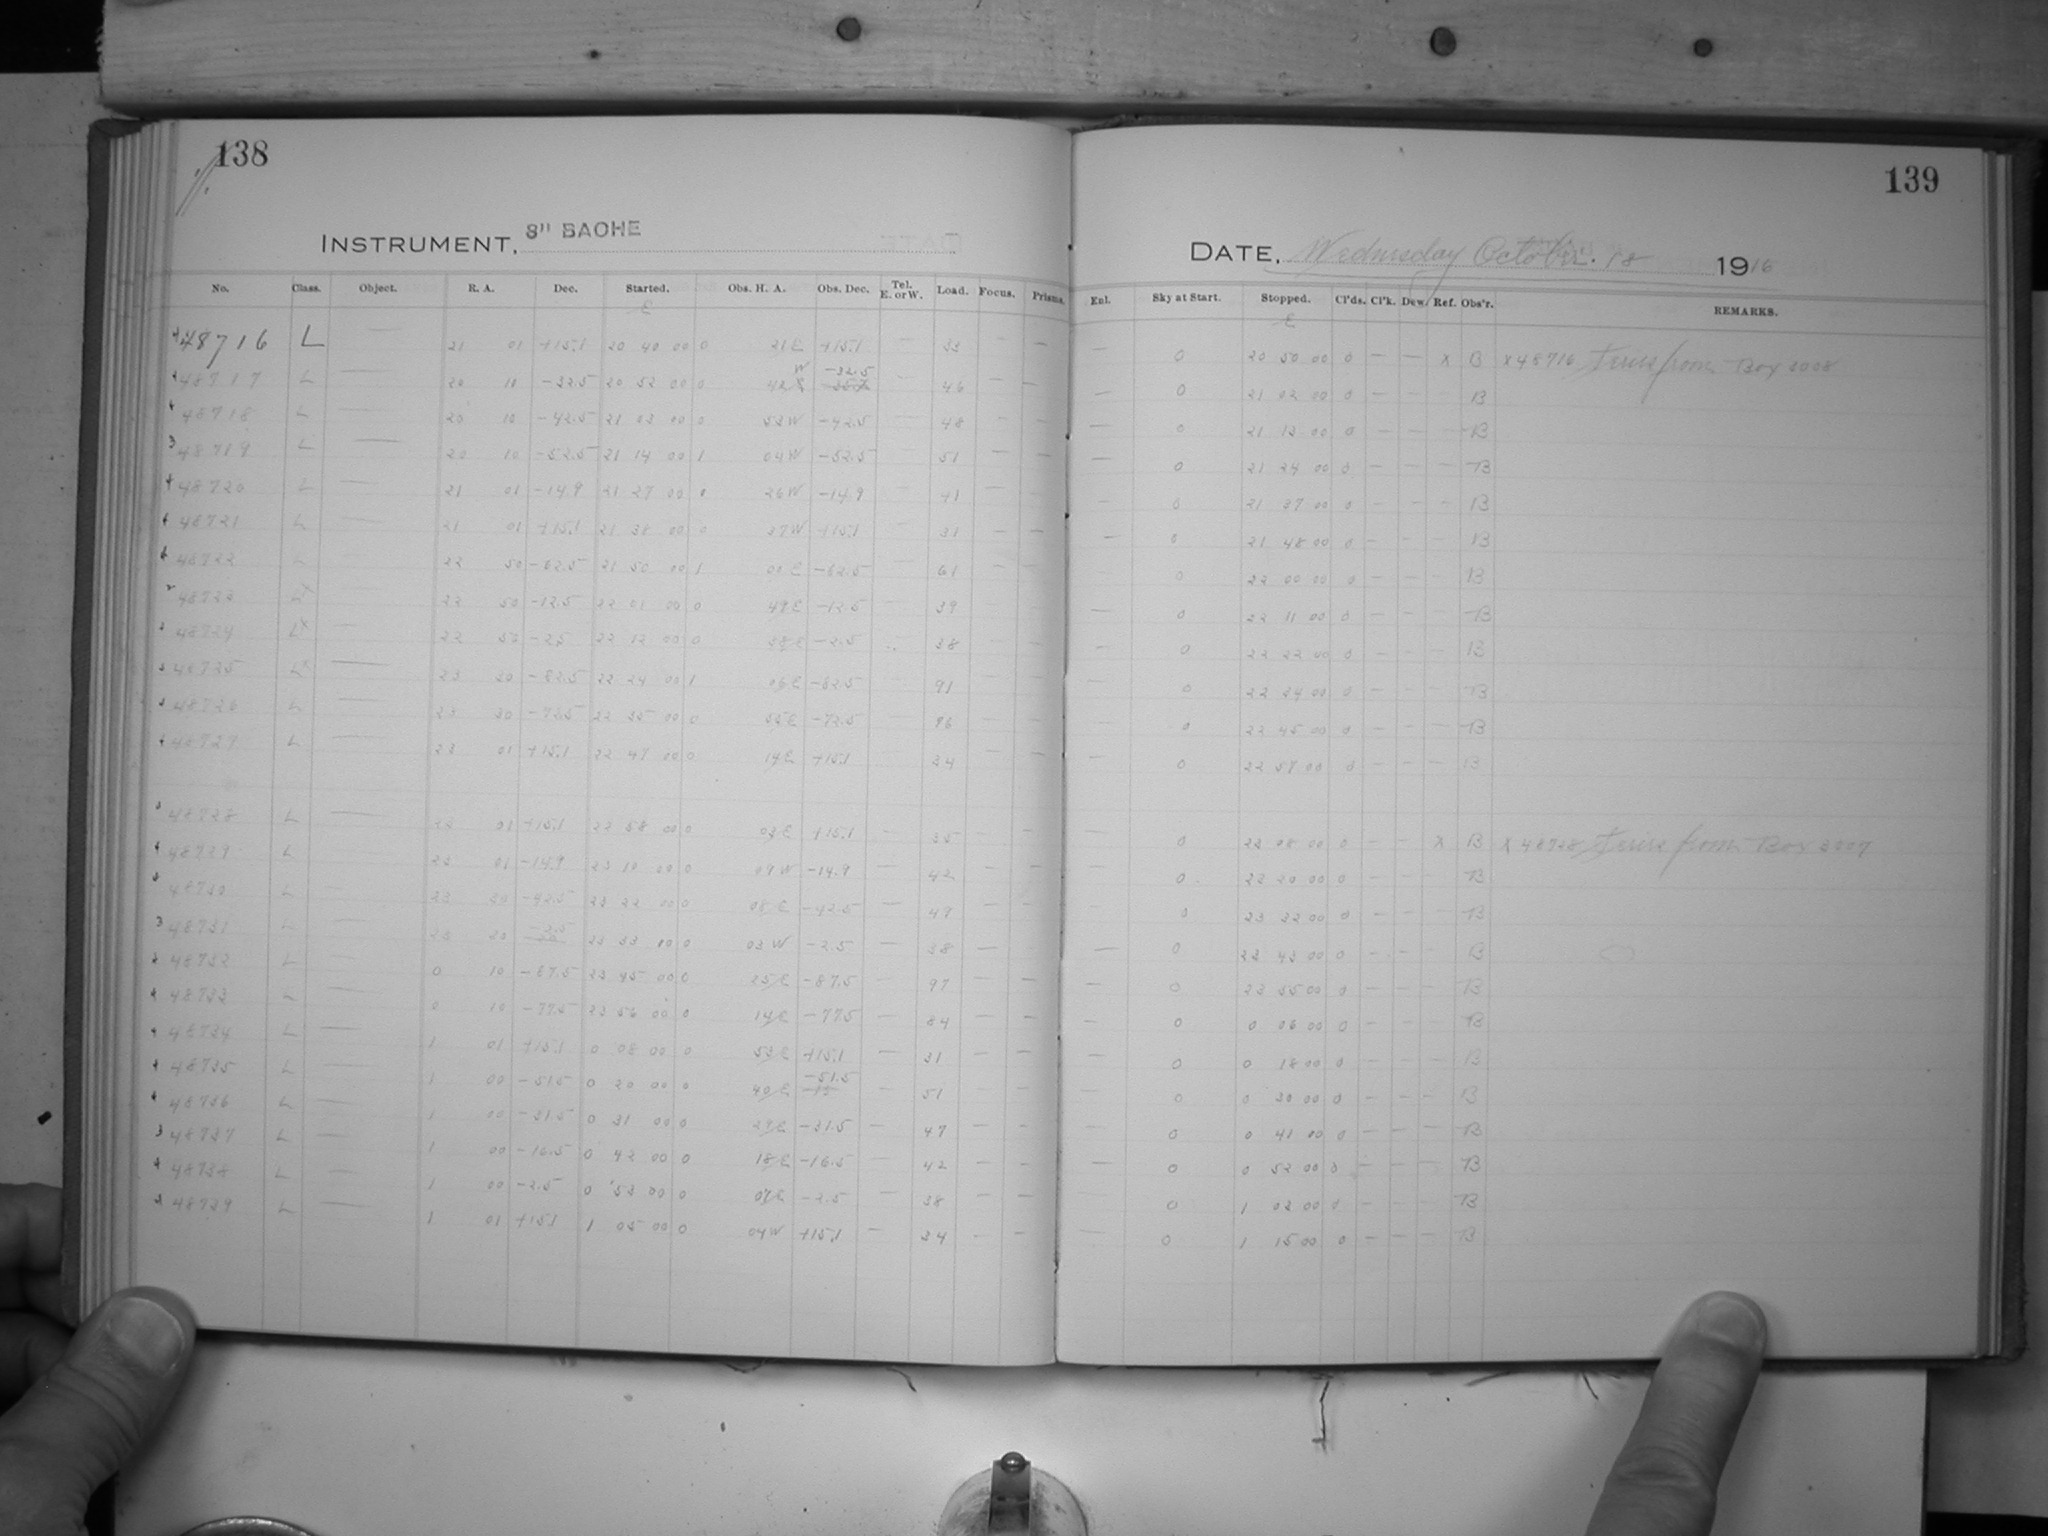 138
INSTRUMENT, 8" BACHE
No. Class. Object. R. A. Dec. Started. Obs. H. A. Obs. Dec. Tel. E. or W. Load. Focus. Prisms.
48716 L — 21 01 +15.1 20 40 00 0 21 E +15.1 — 33 — —
48717 L — 20 10 -32.5 20 52 00 0 42 W -32.5 — 46 — —
48718 L — 20 10 -42.5 21 03 00 0 53 W -42.5 — 48 — —
48719 L — 20 10 -52.5 21 14 00 1 04 W -52.5 — 51 — —
48720 L — 21 01 -14.9 21 27 00 0 26 W -14.9 — 41 — —
48721 L — 21 01 +15.1 21 38 00 0 37 W +15.1 — 31 — —
48722 L — 22 50 -62.5 21 50 00 1 00 E -62.5 — 61 — —
48723 Lx — 22 50 -12.5 22 01 00 0 49 E -12.5 — 39 — —
48724 Lx — 22 50 -2.5 22 12 00 0 38 E -2.5 — 38 — —
48725 Lx — 23 30 -82.5 22 24 00 1 06 E -82.5 — 91 — —
48726 L — 23 30 -72.5 22 35 00 0 55 E -72.5 — 86 — —
48727 L — 23 01 +15.1 22 47 00 0 14 E +15.1 — 34 — —
48728 L — 23 01 +15.1 22 58 00 0 03 E +15.1 — 35 — —
48729 L — 23 01 -14.9 23 10 00 0 09 W -14.9 — 42 — —
48730 L — 23 30 -42.5 23 22 00 0 08 E -42.5 — 49 — —
48731 L — 23 30 -2.5 23 33 00 0 03 W -2.5 — 38 — —
48732 L — 0 10 -87.5 23 45 00 0 25 E -87.5 — 97 — —
48733 L — 0 10 -77.5 23 56 00 0 14 E -77.5 — 84 — —
48734 L — 1 01 +15.1 0 08 00 0 53 E +15.1 — 31 — —
48735 L — 1 00 -51.5 0 20 00 0 40 E -51.5 — 51 — —
48736 L — 1 00 -31.5 0 31 00 0 29 E -31.5 — 47 — —
48737 L — 1 00 -16.5 0 42 00 0 18 E -16.5 — 42 — —
48738 L — 1 00 -2.5 0 53 00 0 07 E -2.5 — 38 — —
48739 L — 1 01 +15.1 1 05 00 0 04 W +15.1 — 34 — —
139
DATE, Wednesday October. 18 1916
Enl. Sky at Start. Stopped. Cl'ds. Cl'k. Dew. Ref. Obs'r. REMARKS.
— 0 20 50 00 0 — — x B x 48716 from Box
— 0 21 02 00 0 — — B
— 0 21 13 00 0 — — — B
— 0 21 24 00 0 — — — B
— 0 21 37 00 0 — — — B
— 0 21 48 00 0 — — — B
— 0 22 00 00 0 — — — B
— 0 22 11 00 0 — — — B
— 0 22 22 00 0 — — — B
— 0 22 34 00 0 — — — B
— 0 22 45 00 0 — — — B
— 0 22 57 00 0 — — — B
— 0 22 08 00 0 — — x B x 48728 from Box
— 0 22 20 00 0 — — — B
— 0 23 32 00 0 — — — B
— 0 23 43 00 0 — — — B
— 0 23 55 00 0 — — — B
— 0 0 06 00 0 — — — B
— 0 0 18 00 0 — — — B
— 0 0 30 00 0 — — — B
— 0 0 41 00 0 — — — B
— 0 0 52 00 0 — — — B
— 0 1 03 00 0 — — — B
— 0 1 15 00 0 — — — B